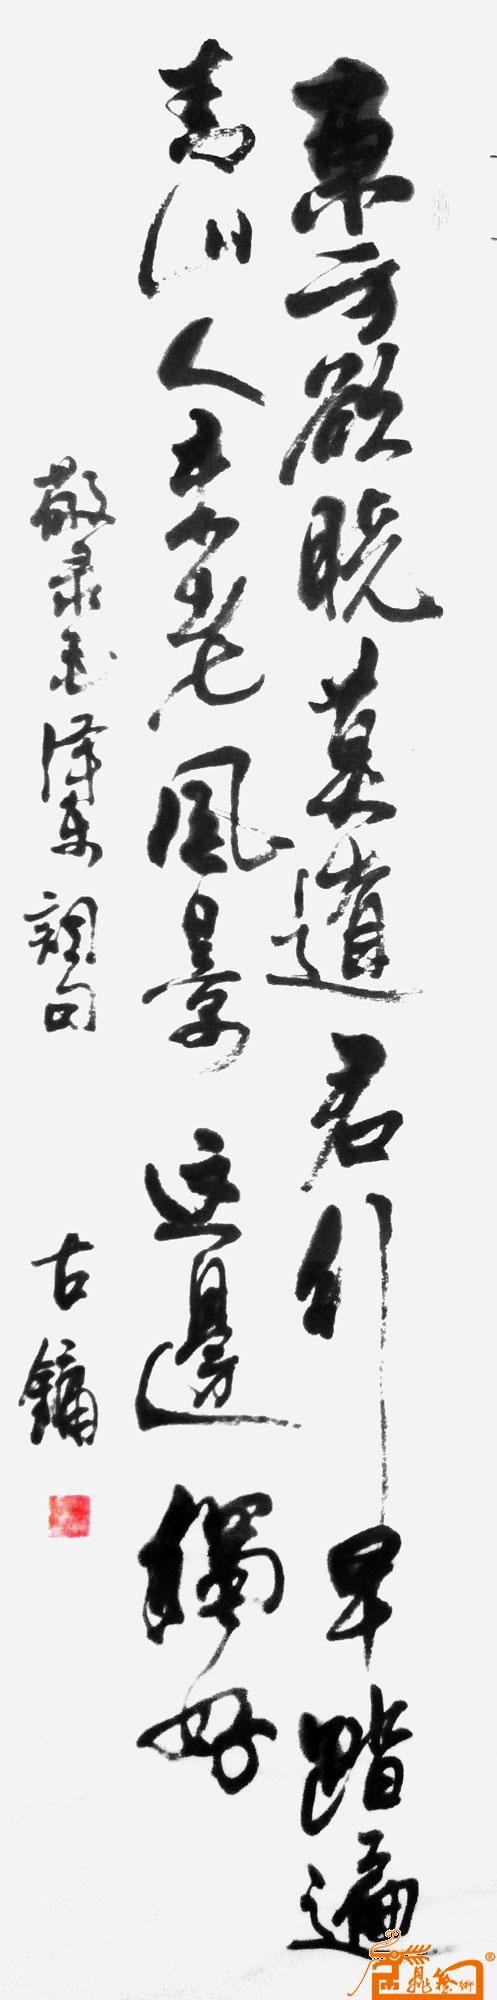 東方欲晓莫道君行早踏遍
青山人未老風景这邊獨好
敬录毛泽东詞句 古鏞